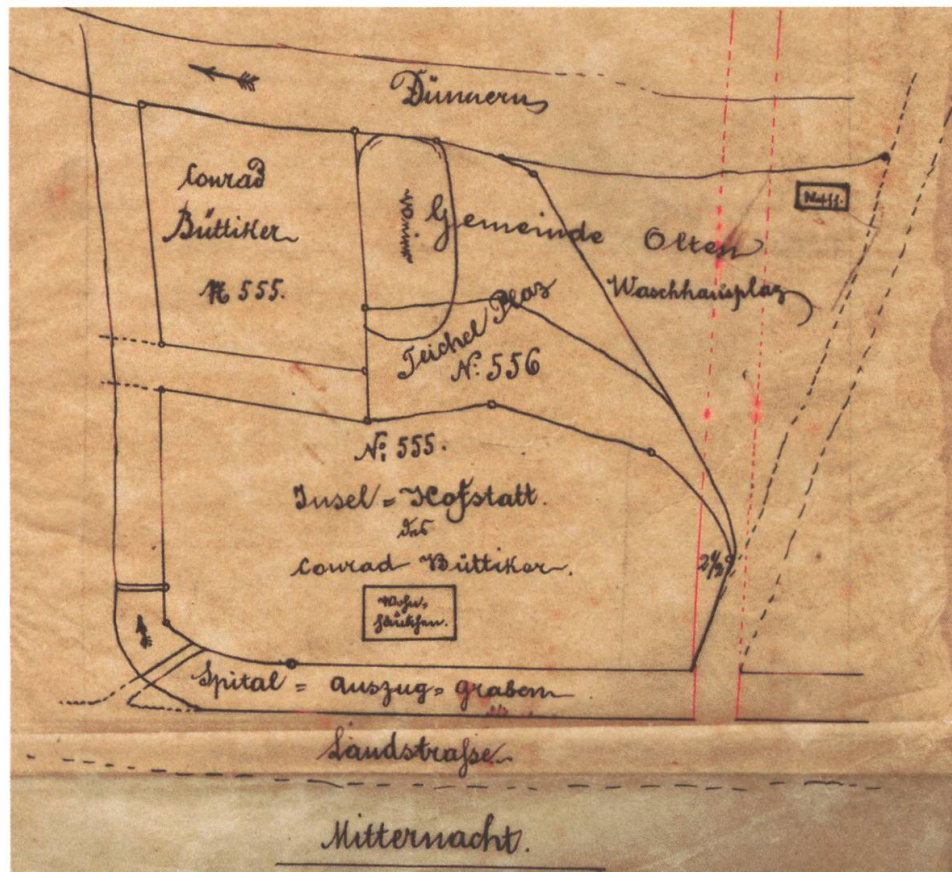 Dünnern
Conrad
Büttiker
№ 555.
Gemeinde Olten
Waschhausplaz
Teichel Plaz
№ 556
№ 555.
Insel = Hofstatt
des
Conrad Büttiker.
Wohn-
häuschen.
2½
Spital = auszug = graben
Landstraße
Mitternacht.